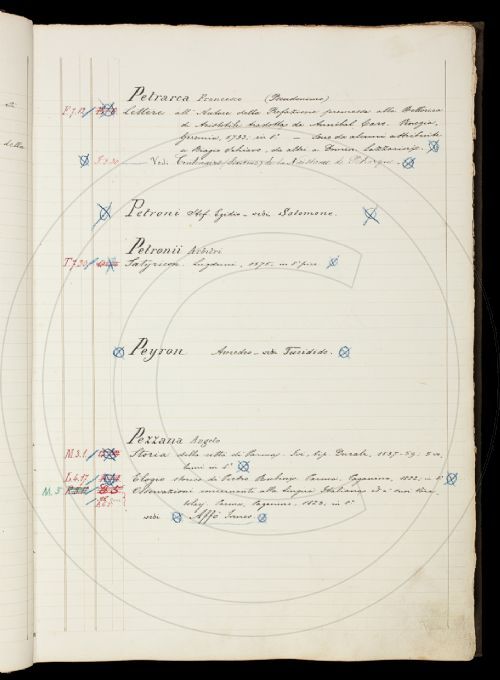 Petrarca Francesco (Pseudonimo)
F.7.12 Lettere all' Autore della Prefazione premessa alla Rettorica
di Aristotile tradotta da Annibal Caro. Venezia,
1733. in 8° — sono da alcuni attribuite
a Biagio Schiavo, da altri a Lazzarini.
Ved.
Petroni Stef. Egidio - vedi Salomone.
Petronii Arbitri
T.7.30 Satyricon. Lugduni, 1575. in 8° picc.
Peyron Amedeo - vedi Tucidide.
Pezzana Angelo
M.3.1. Storia della città di Parma. tip. Ducale, 1837-59. 5 vo
lumi in 4°
L.4.17 Elogio storico di Pietro Rubini. Parma, Paganino, 1822. in 8°
M. 5 Osservazioni concernenti alla Lingua Italiana ed a' suoi Voca
bolarj. Parma, Paganino, 1823. in 8°
vedi Affò Ireneo.
della